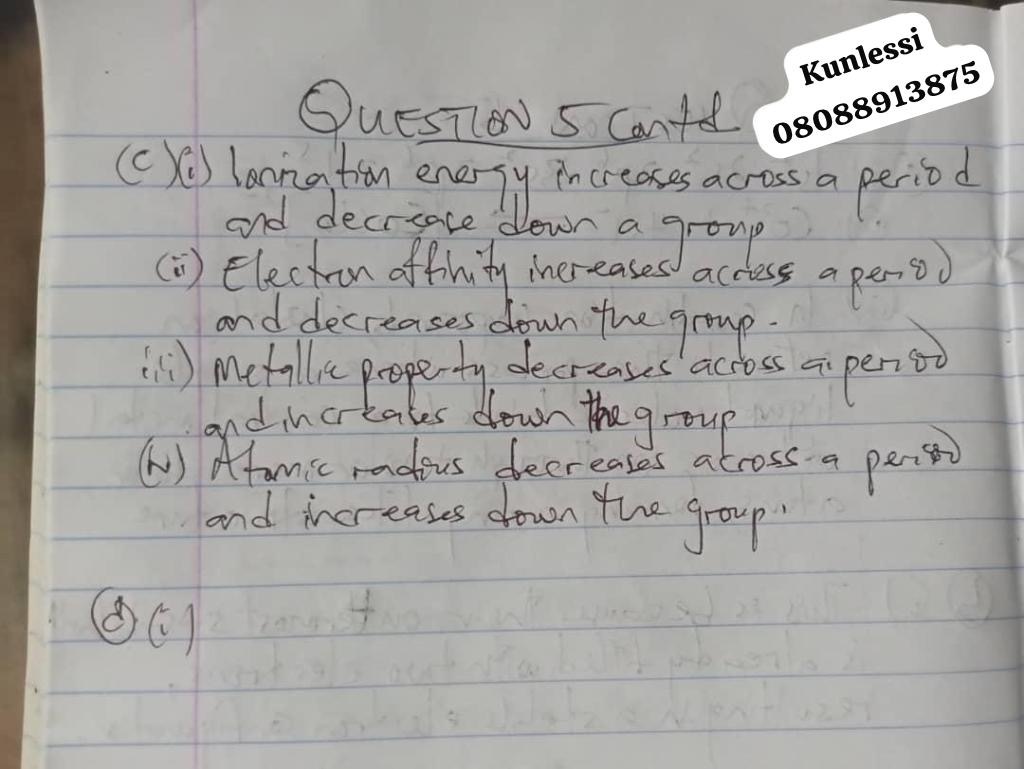 Kunlessi
08088913875
QUESTION 5 Contd
(C)(i) Ionization energy increases across a period
and decrease down a group
(ii) Electron affinity increases across a period
and decreases down the group.
iii) Metallic property decreases across a period
and increases down the group
(iv) Atomic radius decreases across a period
and increases down the group.
(d) (i)